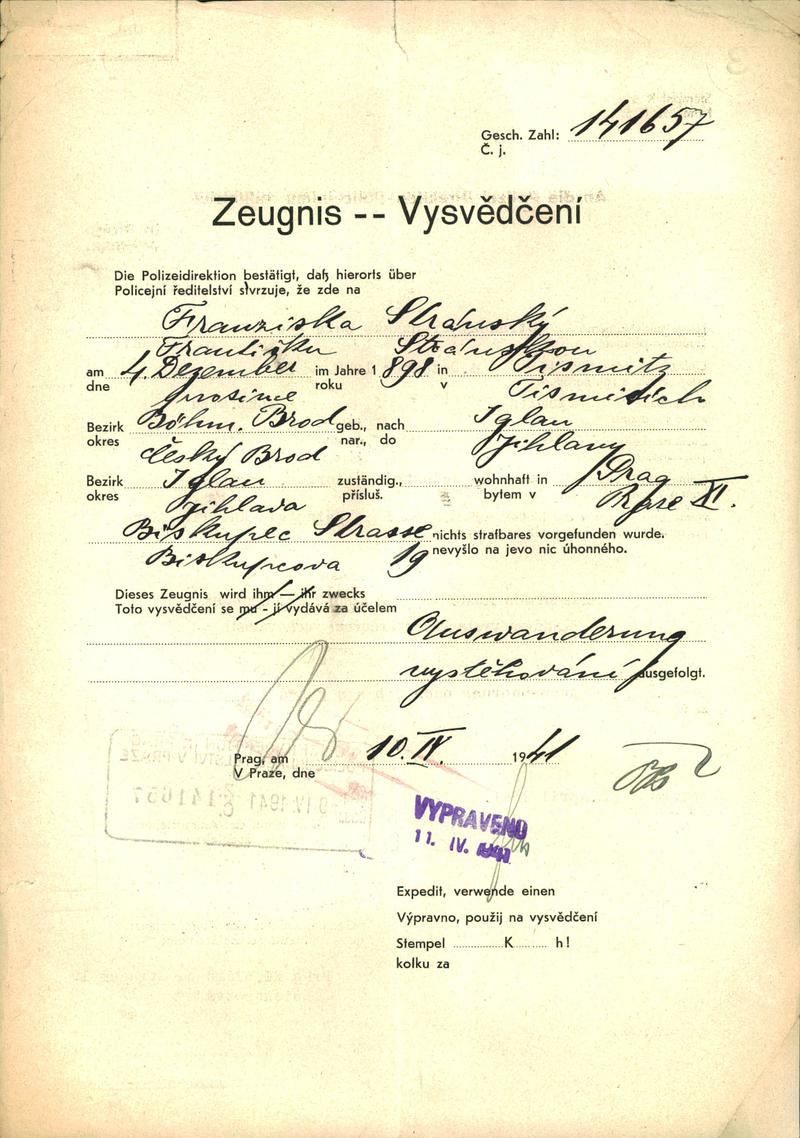 Gesch. Zahl: 141657
Č. j.
Zeugnis -- Vysvědčení
Die Polizeidirektion bestätigt, daß hierorts über
Policejní ředitelství stvrzuje, že zde na
Franziska Stránský
Františku Stránskou
am 4. Dezember im Jahre 1898 in Tismitz
dne prosince roku v Tismicích
Bezirk Böhm. Brod geb., nach Iglau
okres Český Brod nar., do Jihlavy
Bezirk Iglau zuständig., wohnhaft in Prag
okres Jihlava přísluš. bytem v Praze XI.
Biskupec Strasse nichts strafbares vorgefunden wurde.
Biskupcova 19 nevyšlo na jevo nic úhonného.
Dieses Zeugnis wird ihm — ihr zwecks
Toto vysvědčení se mu - jí vydává za účelem
Auswanderung
vystěhování ausgefolgt.
Prag, am 10. IV. 1941
V Praze, dne
VYPRAVENO
11. IV. 1941
Expedit, verwende einen
Výpravno, použij na vysvědčení
Stempel K h!
kolku za